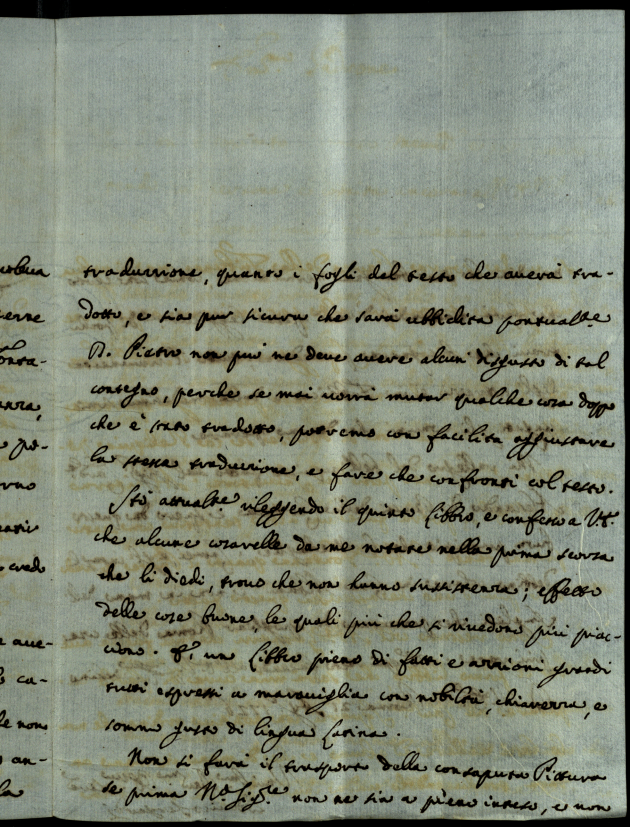 traduzzione, quanto i fogli del testo che averà tra-
dotto, e sia pur sicura che sarà ubbidita pontualte
D. Pietro non può ne deve avere alcun disgusto di tal
contegno, perche se mai vorrà mutar qualche cosa doppo
che è stato tradotto, potremo con facilità aggiustare
la stessa traduzzione, e fare che confronti col testo.
Stò attualte rileggendo il quinto Libbro, e confesso a VS.
che alcune coserelle da me notate nella prima scorsa
che li diedi, trovo che non hanno sussistenza; effetto
delle cose buone, le quali più che si rivedono più piac-
ciono. È un Libbro pieno di fatti e azzioni grandi
tutti espressi a maraviglia con nobiltà, chiarezza, e
sommo gusto di lingua Latina.
Non si farà il trasporto della consaputa Pittura
se prima N. Sigre non ne sia a pieno inteso, e non
verne
anza,
e po-
credo
e ave-
ca-
le non
an-
la